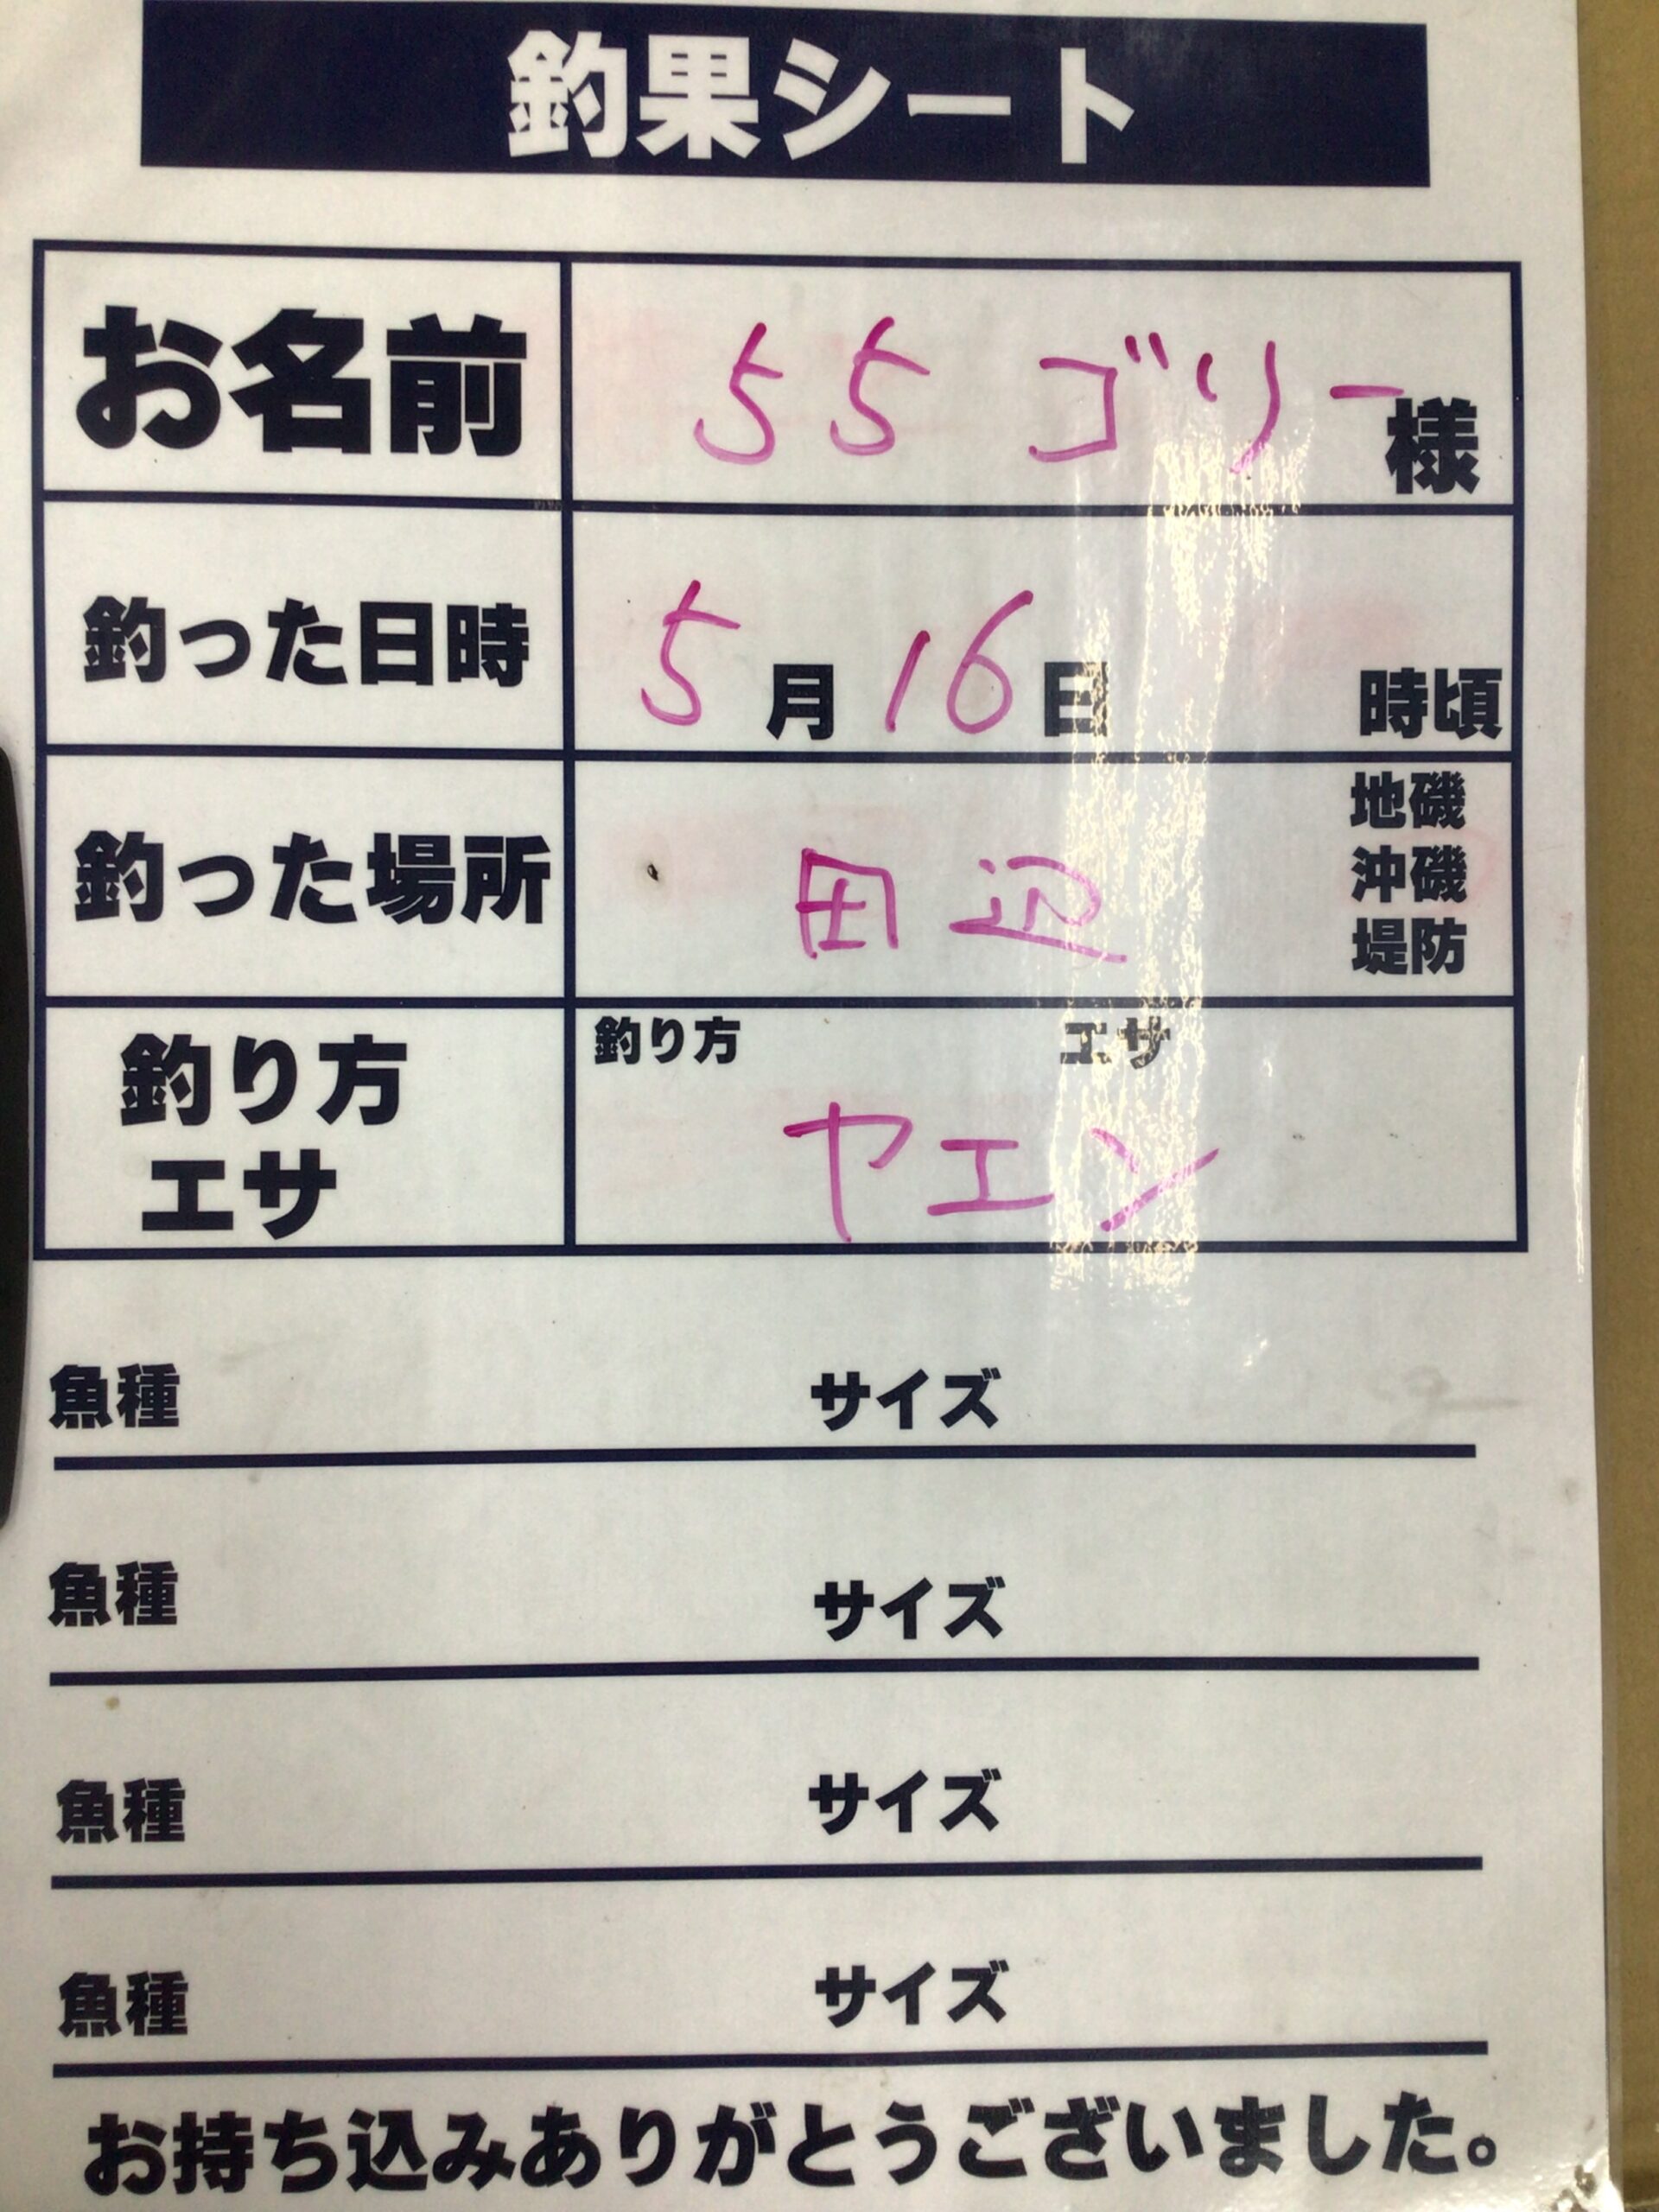 釣果シート
お名前 55 ゴリー様
釣った日時 5月16日 時頃
釣った場所 田辺 地磯
沖磯
堤防
釣り方 エサ
釣り方
エサ
ヤエン
魚種 サイズ
魚種 サイズ
魚種 サイズ
魚種 サイズ
お持ち込みありがとうございました。